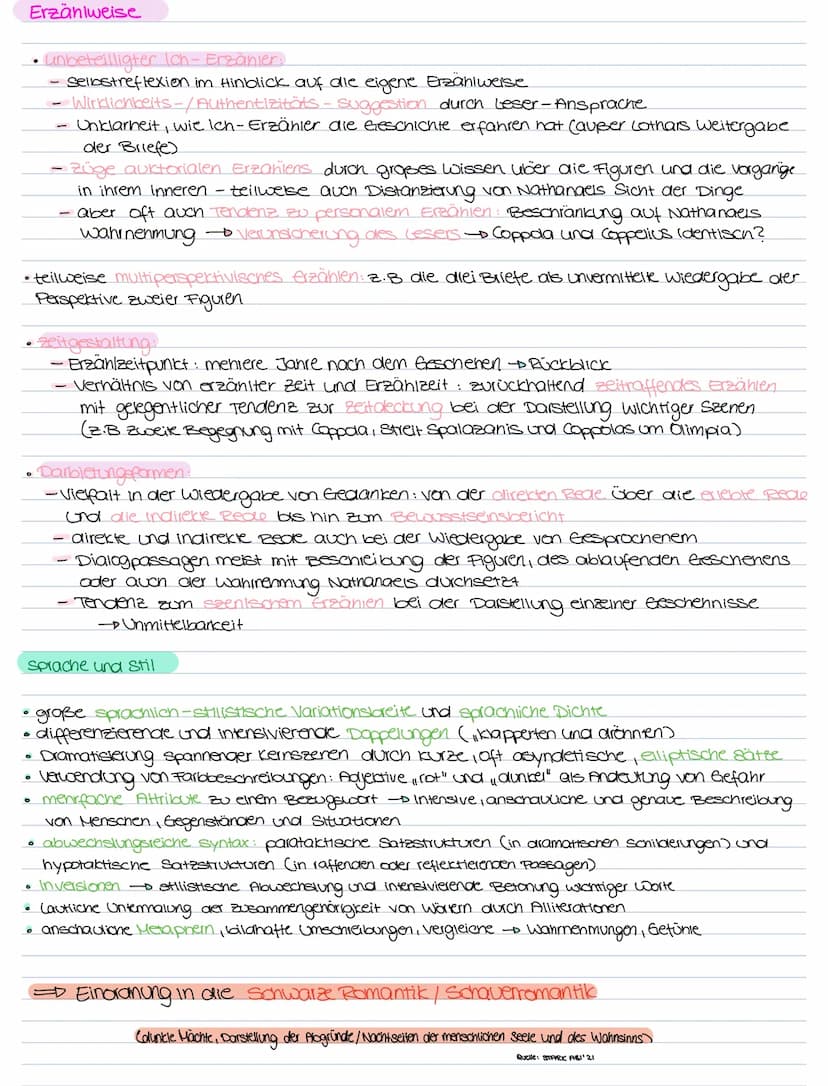 Erzählweise
• unbeteiligter Ich-Erzähler:
– Selbstreflexion im Hinblick auf die eigene Erzählweise
– Wirklichkeits-/Authentizitäts-Suggestion durch Leser-Ansprache
– Unklarheit, wie Ich-Erzähler die Geschichte erfahren hat (außer Lothars Weitergabe
der Briefe)
– Züge auktorialen Erzählens durch großes Wissen über die Figuren und die Vorgänge
in ihrem Inneren – teilweise auch Distanzierung von Nathanaels Sicht der Dinge
– aber oft auch Tendenz zu personalem Erzählen: Beschränkung auf Nathanaels
Wahrnehmung → Verunsicherung des Lesers → Coppola und Coppelius identisch?
• teilweise multiperspektivisches Erzählen: z.B die drei Briefe als unvermittelte Wiedergabe der
Perspektive zweier Figuren
• Zeitgestaltung:
– Erzählzeitpunkt: mehrere Jahre nach dem Geschehen → Rückblick
– Verhältnis von erzählter Zeit und Erzählzeit: zurückhaltend zeitraffendes Erzählen
mit gelegentlicher Tendenz zur Zeitdeckung bei der Darstellung wichtiger Szenen
(z.B zweite Begegnung mit Coppola, Streit Spalazanis und Coppolas um Olimpia)
• Darbietungsformen:
– Vielfalt in der Wiedergabe von Gedanken: von der direkten Rede über die erlebte Rede
und die indirekte Rede bis hin zum Bewusstseinsbericht
– direkte und indirekte Rede auch bei der Wiedergabe von Gesprochenem
– Dialogpassagen meist mit Beschreibung der Figuren, des ablaufenden Geschehens
oder auch der Wahrnehmung Nathanaels durchsetzt
– Tendenz zum szenischem Erzählen bei der Darstellung einzelner Geschehnisse
→ Unmittelbarkeit
Sprache und Stil
• große sprachlich-stilistische Variationsbreite und sprachliche Dichte
• differenzierende und intensivierende Doppelungen („klapperten und dröhnen)
• Dramatisierung spannender Kernszenen durch kurze, oft asyndetische, elliptische Sätze
• Verwendung von Farbbeschreibungen: Adjektive „rot" und „dunkel" als Andeutung von Gefahr
• mehrfache Attribute zu einem Bezugswort → intensive, anschauliche und genaue Beschreibung
von Menschen, Gegenständen und Situationen
• abwechslungsreiche Syntax: parataktische Satzstrukturen (in dramatischen Schilderungen) und
hypotaktische Satzstrukturen (in raffenden oder reflektierenden Passagen)
• Inversionen → stilistische Abwechslung und intensivierende Betonung wichtiger Worte
• Lautliche Untermalung der Zusammengehörigkeit von Wörtern durch Alliterationen
• anschauliche Metaphern, bildhafte Umschreibungen, Vergleiche → Wahrnehmungen, Gefühle
⇒ Einordnung in die Schwarze Romantik / Schauerromantik
(dunkle Mächte, Darstellung der Abgründe/Nachtseiten der menschlichen Seele und des Wahnsinns)
Quelle: STARK Abi '21